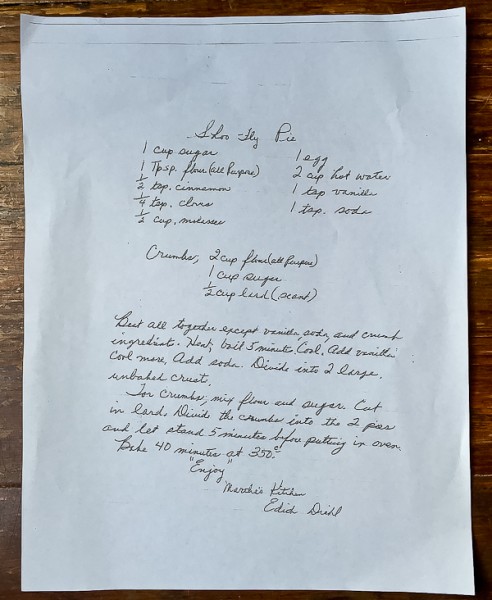 Shoo-Fly Pie
1 cup sugar
1 Tpsp. flour (all Purpose)
1/2 tsp. cinnamon
1/4 tsp. cloves
1/2 cup. molasses
1 egg
2 cup hot water
1 tsp vanilla
1 tsp. soda
Crumbs, 2 cup flour (all Purpose)
1 cup sugar
1/2 cup lard (scant)
Beat all together except vanilla, soda, and crumb
ingredients. Heat, boil 5 minutes, Cool, Add vanilla
Cool more, Add soda. Divide into 2 large
unbaked crust,
For crumbs, mix flour and sugar. Cut
in lard. Divide the crumbs into the 2 pies
and let stand 5 minutes before putting in oven.
Bake 40 minutes at 350.°
"Enjoy"
Martha's Kitchen
Diehl